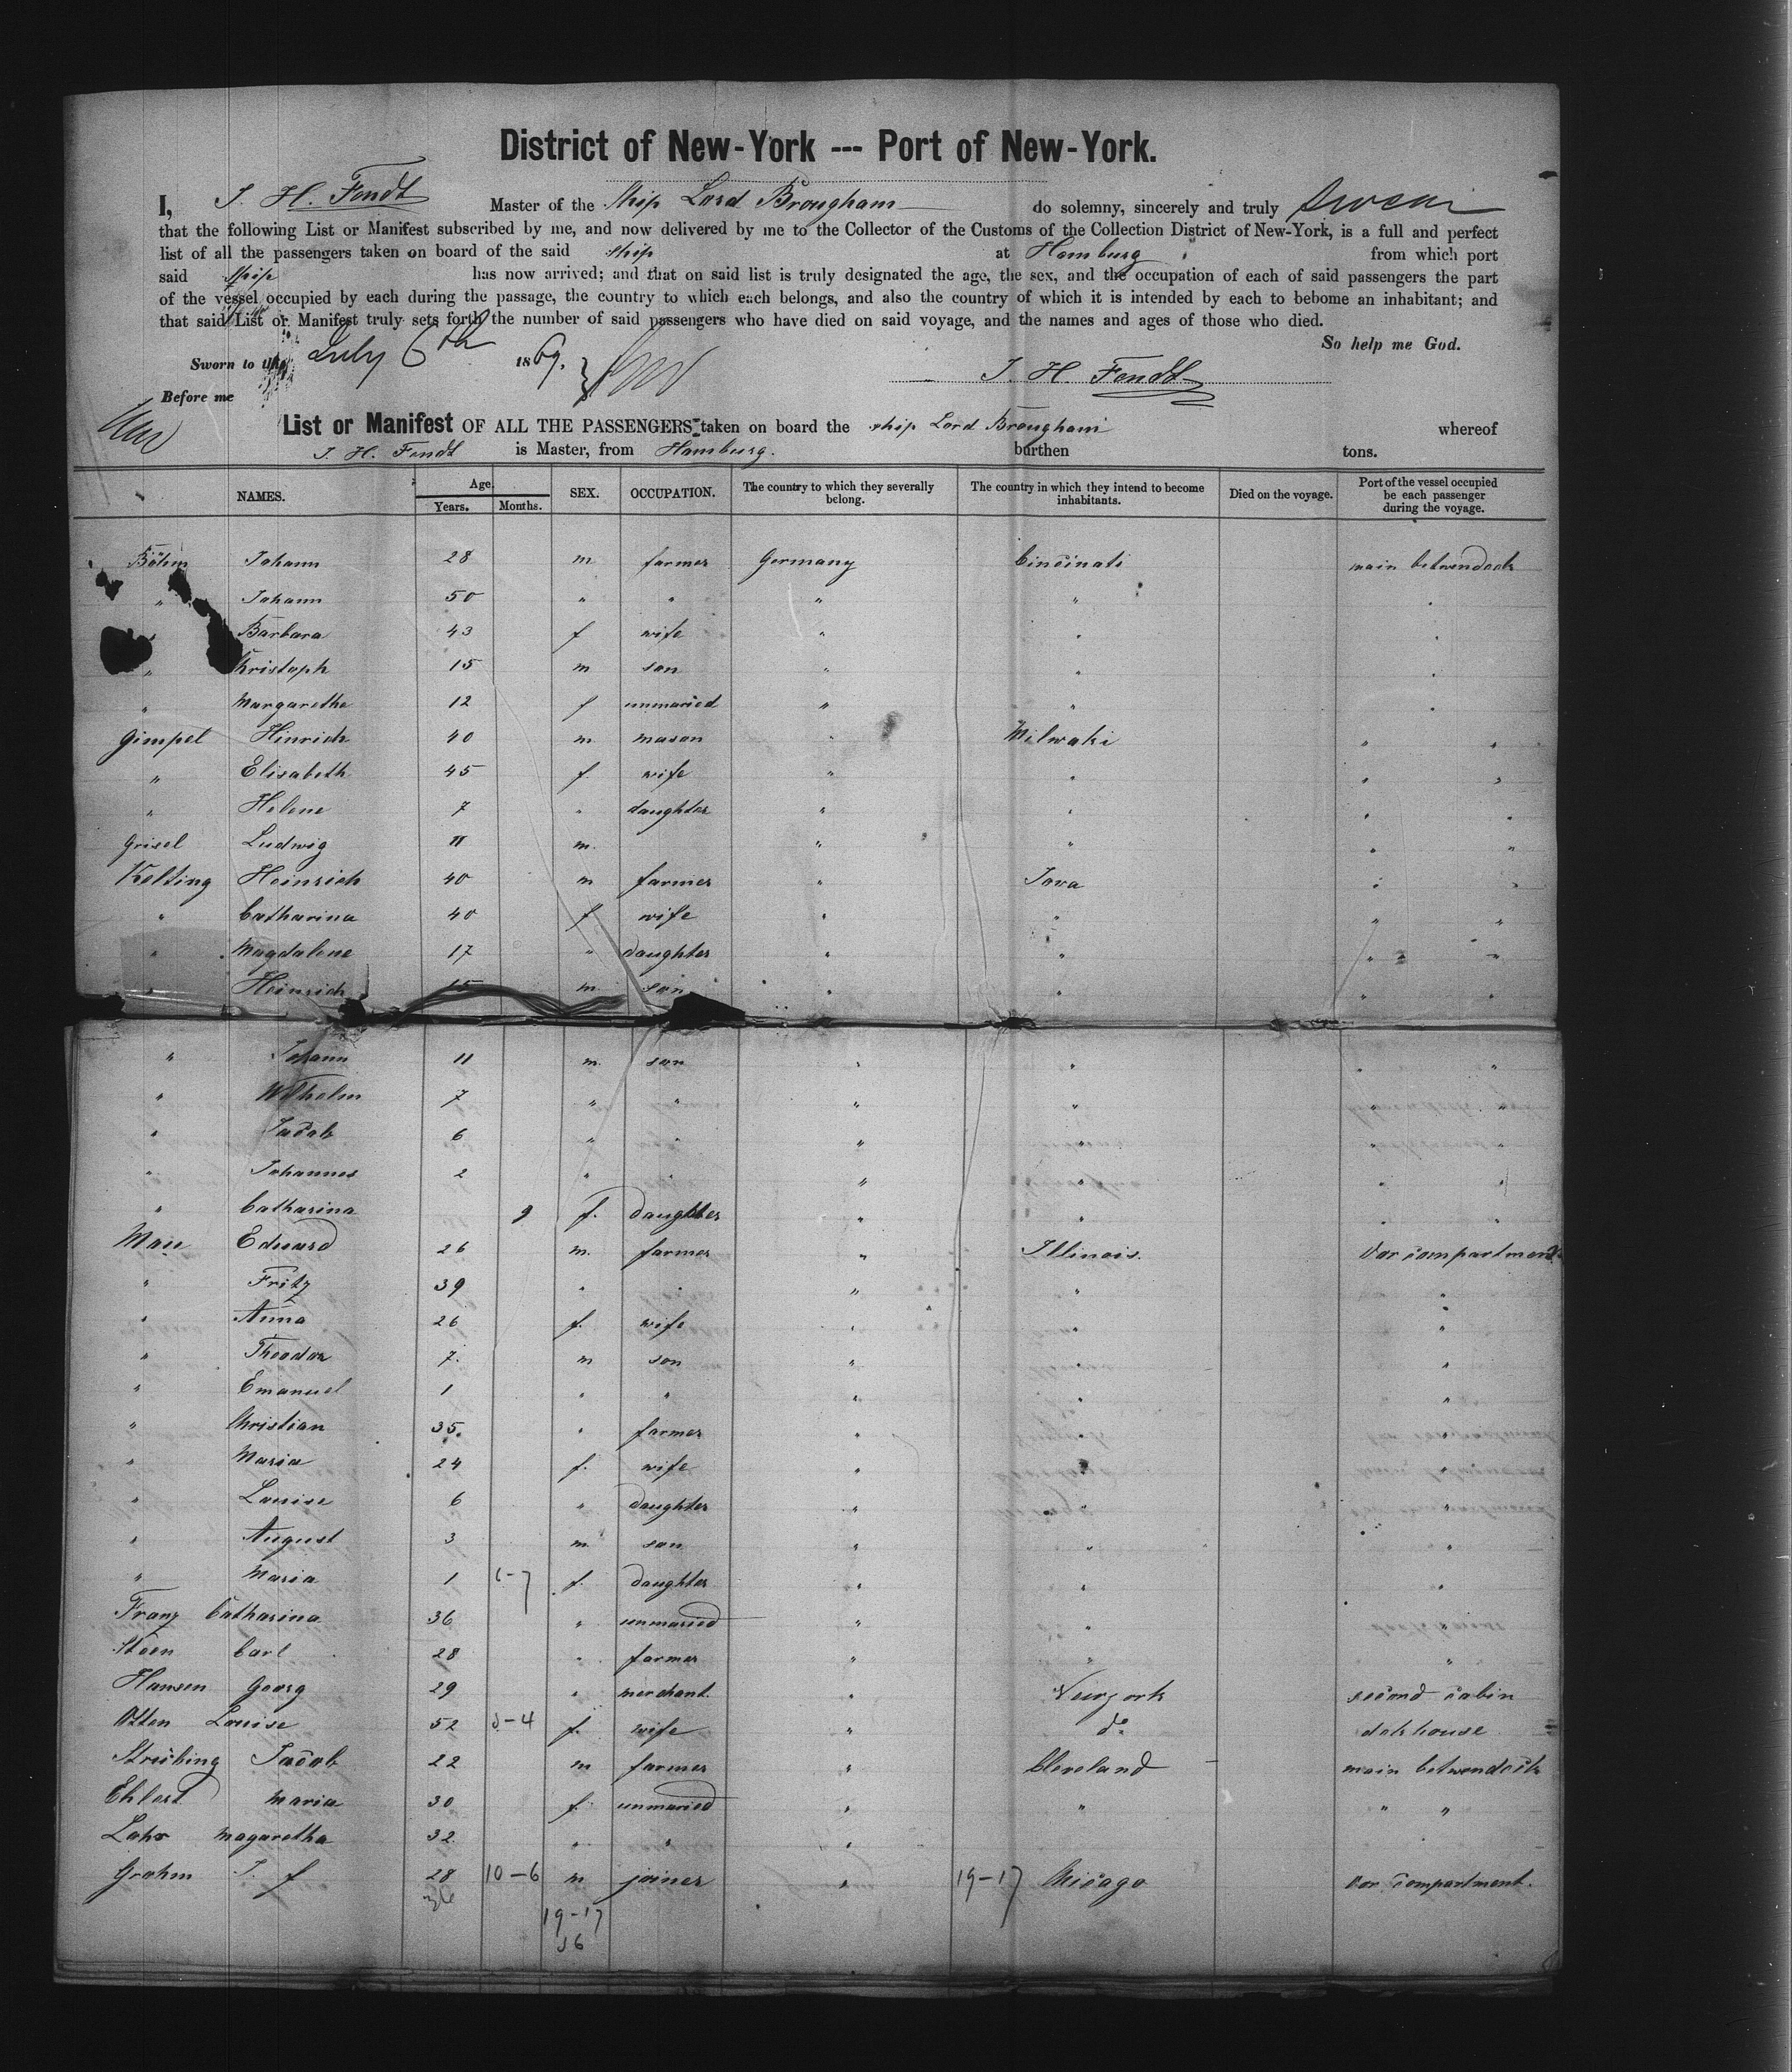 District of New-York --- Port of New-York.
I, J. H. Fendt Master of the Ship Lord Brougham do solemny, sincerely and truly swear
that the following List or Manifest subscribed by me, and now delivered by me to the Collector of the Customs of the Collection District of New-York, is a full and perfect
list of all the passengers taken on board of the said ship at Hamburg from which port
said ship has now arrived; and that on said list is truly designated the age, the sex, and the occupation of each of said passengers the part
of the vessel occupied by each during the passage, the country to which each belongs, and also the country of which it is intended by each to bebome an inhabitant; and
that said List or Manifest truly sets forth the number of said passengers who have died on said voyage, and the names and ages of those who died.
So help me God.
Sworn to this July 6th 1869.
J. H. Fendt
Before me
List or Manifest OF ALL THE PASSENGERS taken on board the ship Lord Brougham whereof
J. H. Fendt is Master, from Hamburg. burthen tons.
NAMES. Age. Years. Months. SEX. OCCUPATION. The country to which they severally belong. The country in which they intend to become inhabitants. Died on the voyage. Port of the vessel occupied be each passenger during the voyage.
Böhm Johann 28 m farmer Germany Cincinati main betwendeck
" Johann 50 " " " " "
" Barbara 43 f wife " " "
" Kristoph 15 m son " " "
" Margarethe 12 f unmaried " " "
Gimpel Hinrich 40 m mason " Milwaki " "
" Elisabeth 45 f. wife " " " "
" Helene 7 " daughter " " " "
Grisel Ludwig 11 m. " " " "
Kelting Heinrich 40 m farmer " Iova " "
" Catharina 40 f wife " " " "
" Magdalene 17 " daughter " " " "
" Heinrich 15 m. son " " " "
" Johann 11 m. son " " " "
" Wilhelm 7 " " " " " "
" Jacob 6 " " " " " "
" Johannes 2 " " " " " "
" Catharina 9 f. daughter " " " "
Mau Eduard 26 m. farmer " Illinois. vor compartment
" Fritz 39 " " " " "
" Anna 26 f. wife " " "
" Theodor 7. m son " " "
" Emanuel 1 " " " " "
" Christian 35. " farmer " " "
" Maria 24 f. wife " " "
" Louise 6 " daughter " " "
" August 3 m son " " "
" Maria 1 6-7 f. daughter " " "
Franz Catharina 36 " unmaried " " "
Steen Carl 28 " farmer " " "
Hansen Georg 29 " merchant. " Newyork second cabin
Otten Louise 52 5-4 f. wife " do dekhouse
Strübing Jacob 22 m farmer " Cleveland main betwendeck
Ehlert Maria 30 f. unmaried " " " "
Lahr Magaretha 32 " " "
Grahm J. f 28 10-6 m joiner " 19-17 Chicago vor compartment.
19-17
36